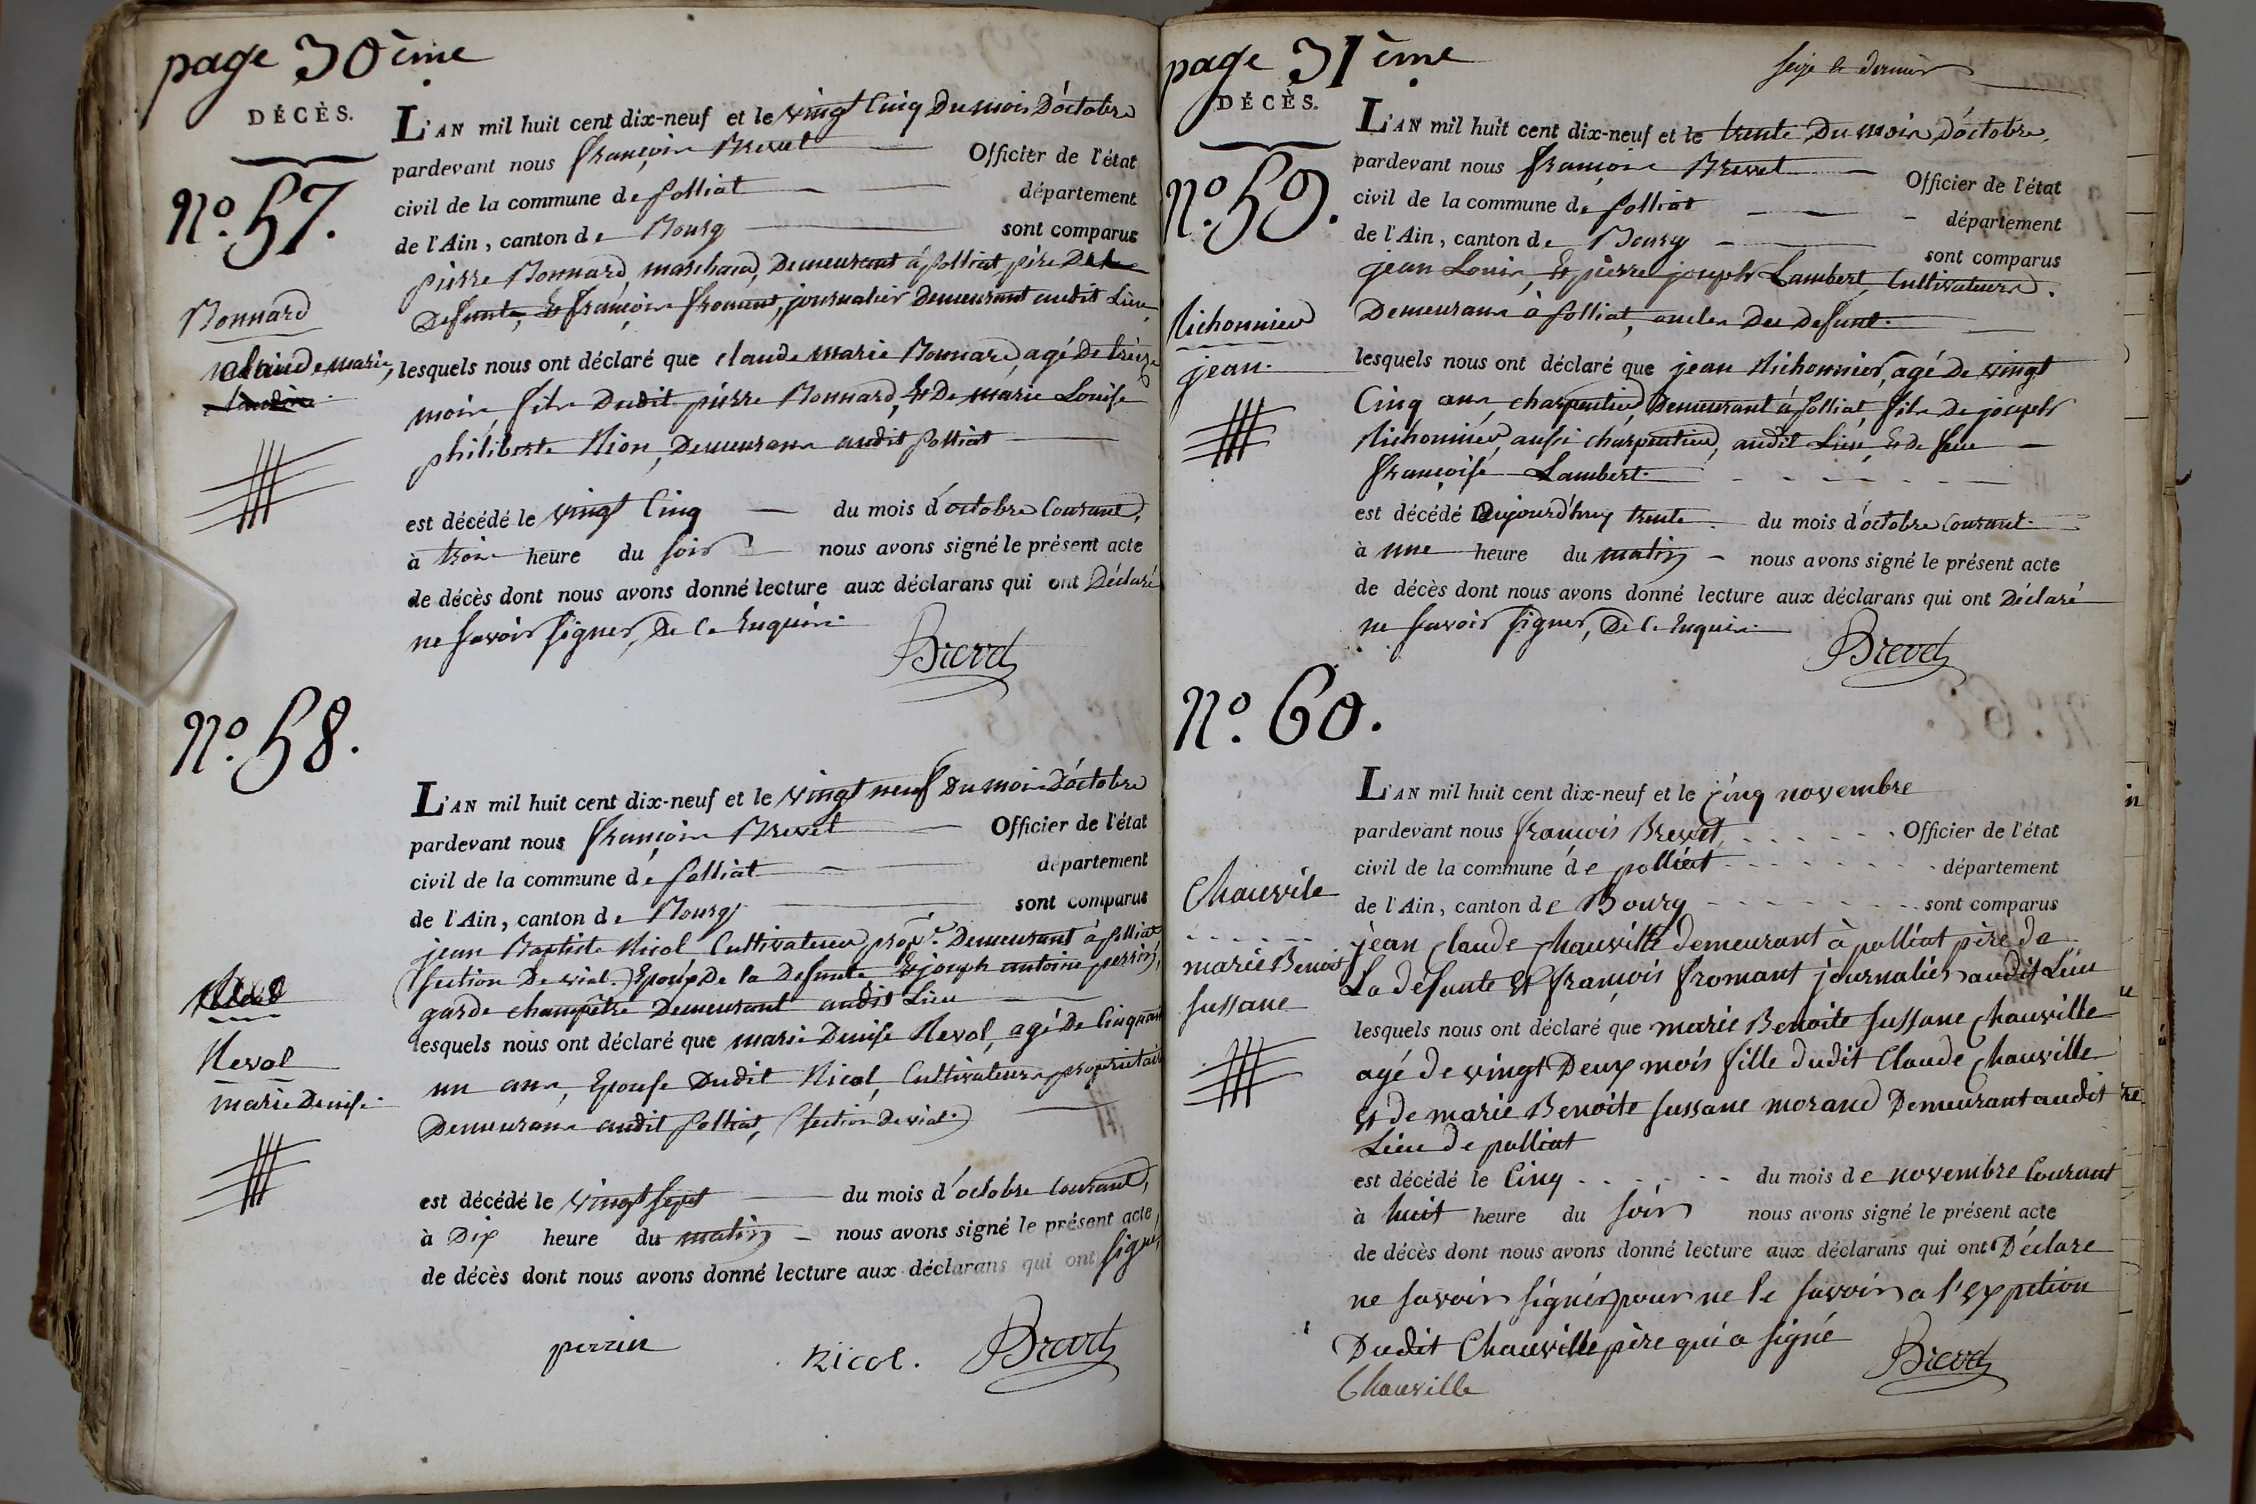 page 30ème
DÉCÈS.
N.º 57.
Bonnard
claude marie,
L'AN mil huit cent dix-neuf et le vingt Cinq Du mois D'octobre
pardevant nous françois Brevet Officier de l'état
civil de la commune de polliat département
de l'Ain, canton de Bourg sont comparus
pierre Bonnard, marchand, Demeurant à polliat père De
Defunte, Et françois fromant, journalier Demeurant audit Lieu,
lesquels nous ont déclaré que claude marie Bonnard, agé De treize
mois, fils Dudit pierre Bonnard, Et De marie Louise
philiberte Nion, Demeurans audit polliat
est décédé le vingt Cinq du mois d'octobre Courant,
à trois heure du soir nous avons signé le présent acte
de décès dont nous avons donné lecture aux déclarans qui ont Déclaré
ne savoir signer, De Ce Enquéris.
Brevet
N.º 58.
Revol
marie Denise.
L'AN mil huit cent dix-neuf et le vingt neuf Du mois D'octobre
pardevant nous françois Brevet Officier de l'état
civil de la commune de polliat département
de l'Ain, canton de Bourg sont comparus
jean Baptiste Nicol Cultivateur propre. Demeurant à polliat
(section De vial.) Epoux De la Defunte Et joseph antoine perrin,
garde champêtre Demeurant audit Lieu
lesquels nous ont déclaré que marie Denise Revol, agé De Cinquante
un ans, Epouse Dudit Nicol, Cultivateurs propriétaire
Demeurans audit polliat, (section De vial.)
est décédé le vingt sept du mois d'octobre Courant,
à Dix heure du matin nous avons signé le présent acte
de décès dont nous avons donné lecture aux déclarans qui ont signé,
perrin Nicol. Brevet
page 31ème
seize & dernier
DÉCÈS.
N.º 59.
Michonnier
jean.
L'AN mil huit cent dix-neuf et le trente Du mois D'octobre,
pardevant nous françois Brevet Officier de l'état
civil de la commune de polliat département
de l'Ain, canton de Bourg sont comparus
jean Louis, Et pierre joseph Lambert, Cultivateurs.
Demeurans à polliat, oncles Du Defunt.
lesquels nous ont déclaré que jean Michonnier, agé De vingt
Cinq ans, charpentier, Demeurant à polliat, fils De joseph
Michonnier, aussi charpentier, audit Lieu, Et de feue
françoise Lambert.
est décédé aujourd'huy trente du mois d'octobre Courant.
à une heure du matin nous avons signé le présent acte
de décès dont nous avons donné lecture aux déclarans qui ont Déclaré
ne savoir signer, De Ce Enquéris.
Brevet
N.º 60.
Chauville
marie Benoit
sussane
L'AN mil huit cent dix-neuf et le cinq novembre
pardevant nous francois Brevet Officier de l'état
civil de la commune de polliat département
de l'Ain, canton de Bourg sont comparus
jean Claude Chauville demeurant à polliat père de
La défunte Et françois fromant journalier audit Lieu
lesquels nous ont déclaré que marie Benoite sussane Chauville
agé de vingt Deux mois fille dudit Claude Chauville
Et de marie Benoite sussane morand Demeurant audit
Lieu de polliat
est décédé le Cinq du mois de novembre Courant
à huit heure du soir nous avons signé le présent acte
de décès dont nous avons donné lecture aux déclarans qui ont Déclare
ne savoir signér pour ne le savoir a l'exption
Dudit Chauville père qui a signé
Brevet
Chauville